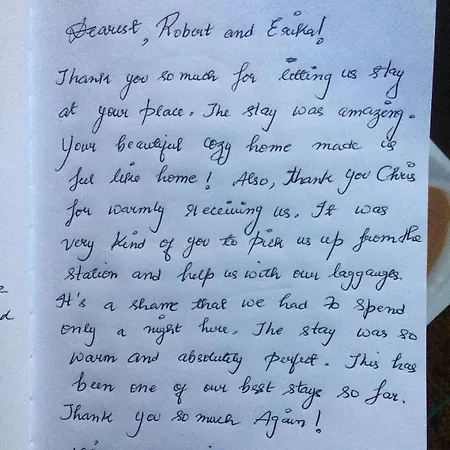 Dearest, Robert and Erika!
Thank you so much for letting us stay
at your place. The stay was amazing.
Your beautiful cozy home made us
feel like home! Also, thank you Chris
for warmly receiving us. It was
very kind of you to pick us up from the
station and help us with our laggauges.
It's a shame that we had to spend
only a night here. The stay was so
warm and absolutely perfect. This has
been one of our best stays so far.
Thank you so much Again!